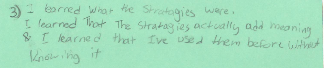 3) I learned what the Strategies were.
I learned That The Strategies actually add meaning
& I learned that Ive used them before without
Knowing it